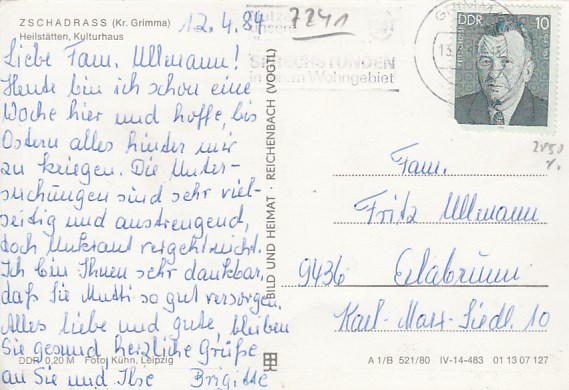 ZSCHADRASS (Kr. Grimma)
Heilstätten, Kulturhaus
12.4.84
7241
Liebe Fam. Ullmann!
Heute bin ich schon eine
Woche hier und hoffe, bis
Ostern alles hinter mir
zu kriegen. Die Unter-
suchungen sind sehr viel-
seitig und anstrengend,
doch Unkraut vergeht nicht.
Ich bin Ihnen sehr dankbar,
daß Sie Mutti so gut versorgen.
Alles liebe und gute, bleiben
Sie gesund, herzliche Grüße
an Sie und Ilse Brigitte
DDR 0,20 M Foto: Kühn, Leipzig
BILD UND HEIMAT · REICHENBACH (VOGTL)
SPRECHSTUNDEN
in Ihrem Wohngebiet
GRIMMA
DDR 10
Fam.
Fritz Ullmann
9436 Erlabrunn
Karl-Marx-Siedl. 10
A 1/B 521/80 IV-14-483 01 13 07 127